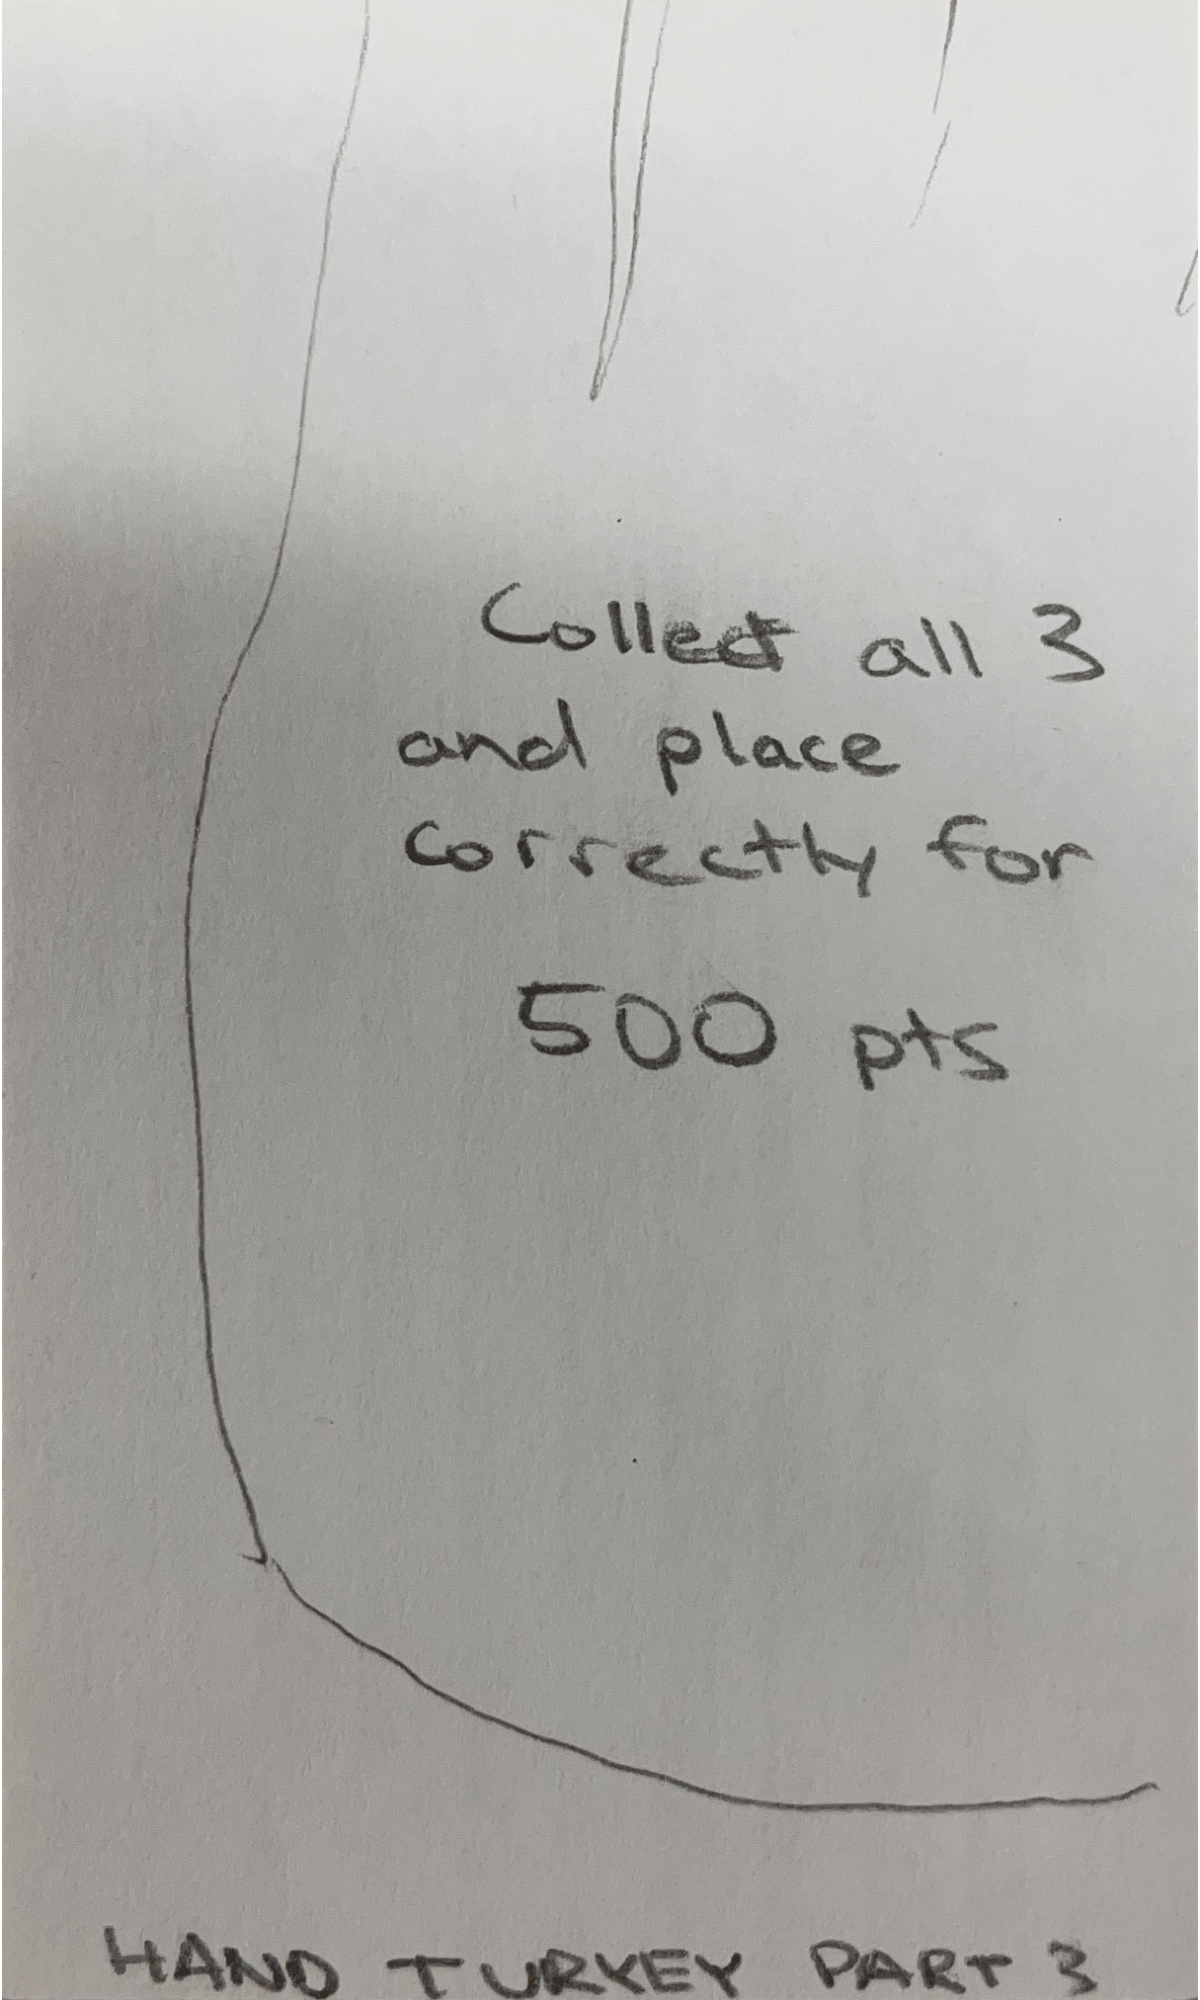 Collect all 3
and place
correctly for
500 pts
HAND TURKEY PART 3